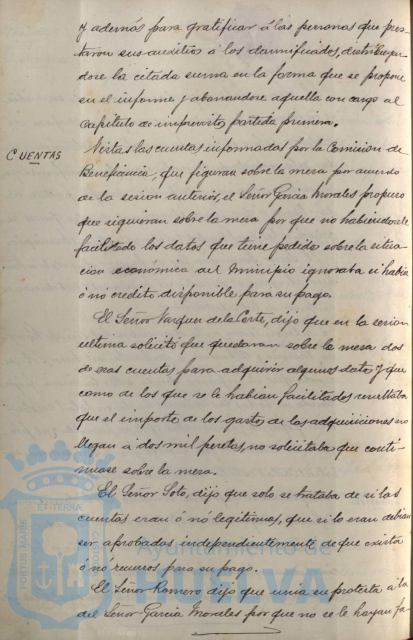 y además para gratificar á las personas que pres-
taron sus auxilios á los damnificados, distribuyen-
dose la citada suma en la forma que se propone
en el informe y abonandose aquella con cargo al
Capitulo de imprevistos partida primera.
CUENTAS
Vistas las cuentas informadas por la Comision de
Beneficencia, que figuran sobre la mesa por acuerdo
de la sesion anterior, el Señor Garcia Morales propuso
que siguieran sobre la mesa por que no habiendosele
facilitado los datos que tiene pedido sobre la situa-
cion económica del Municipio ignoraba si habia
ó no credito disponible para su pago.
El Señor Vazquez de la Corte, dijo que en la sesion
ultima solicitó que quedaran sobre la mesa dos
de esas cuentas para adquirir algunos datos y que
como de los que se le habian facilitados resultaba
que el importe de los gastos de las adquisiciones no
llegan á dos mil pesetas, no solicitaba que conti-
nuase sobre la mesa.
El Señor Soto, dijo que solo se trataba de si las
cuentas eran ó no legitimas, que si lo eran debian
ser aprobadas independientemente de que exista
ó no recursos para su pago.
El Señor Romero dijo que unia su protesta á la
del Señor Garcia Morales por que no se le hayan fa-
PORTUS MARIS
ET TERRÆ
Ayuntamiento de
HUELVA